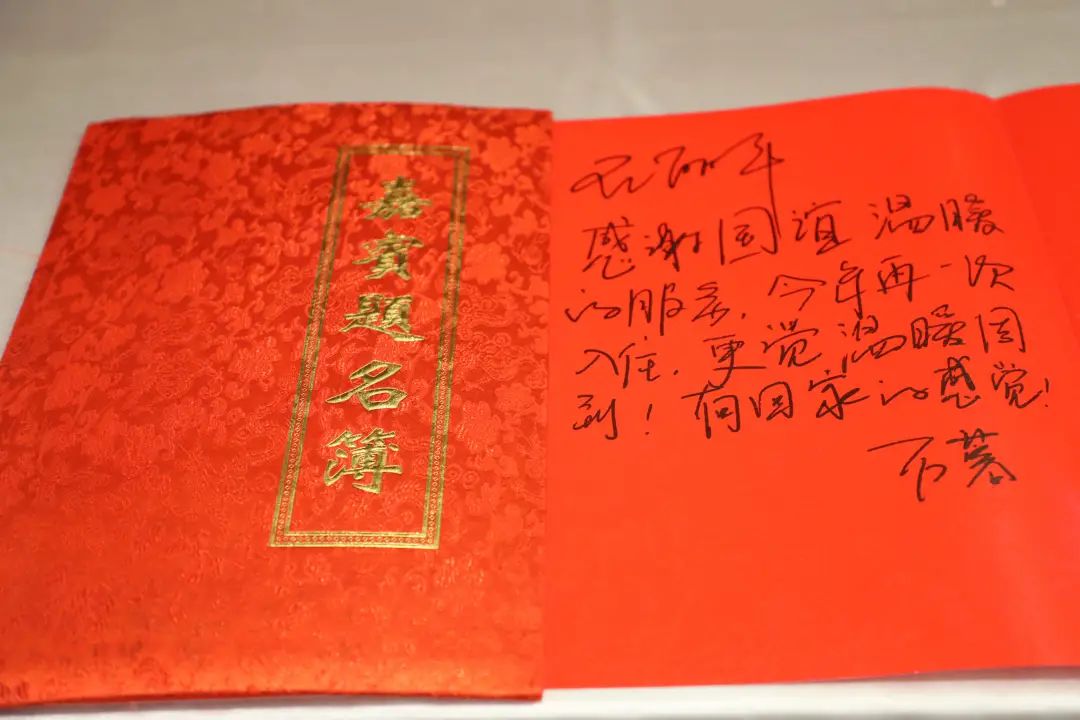 嘉賓題名簿
感谢国谊温暖
的服务,今年再一次
入住,更觉温暖周
到!有回家的感觉!